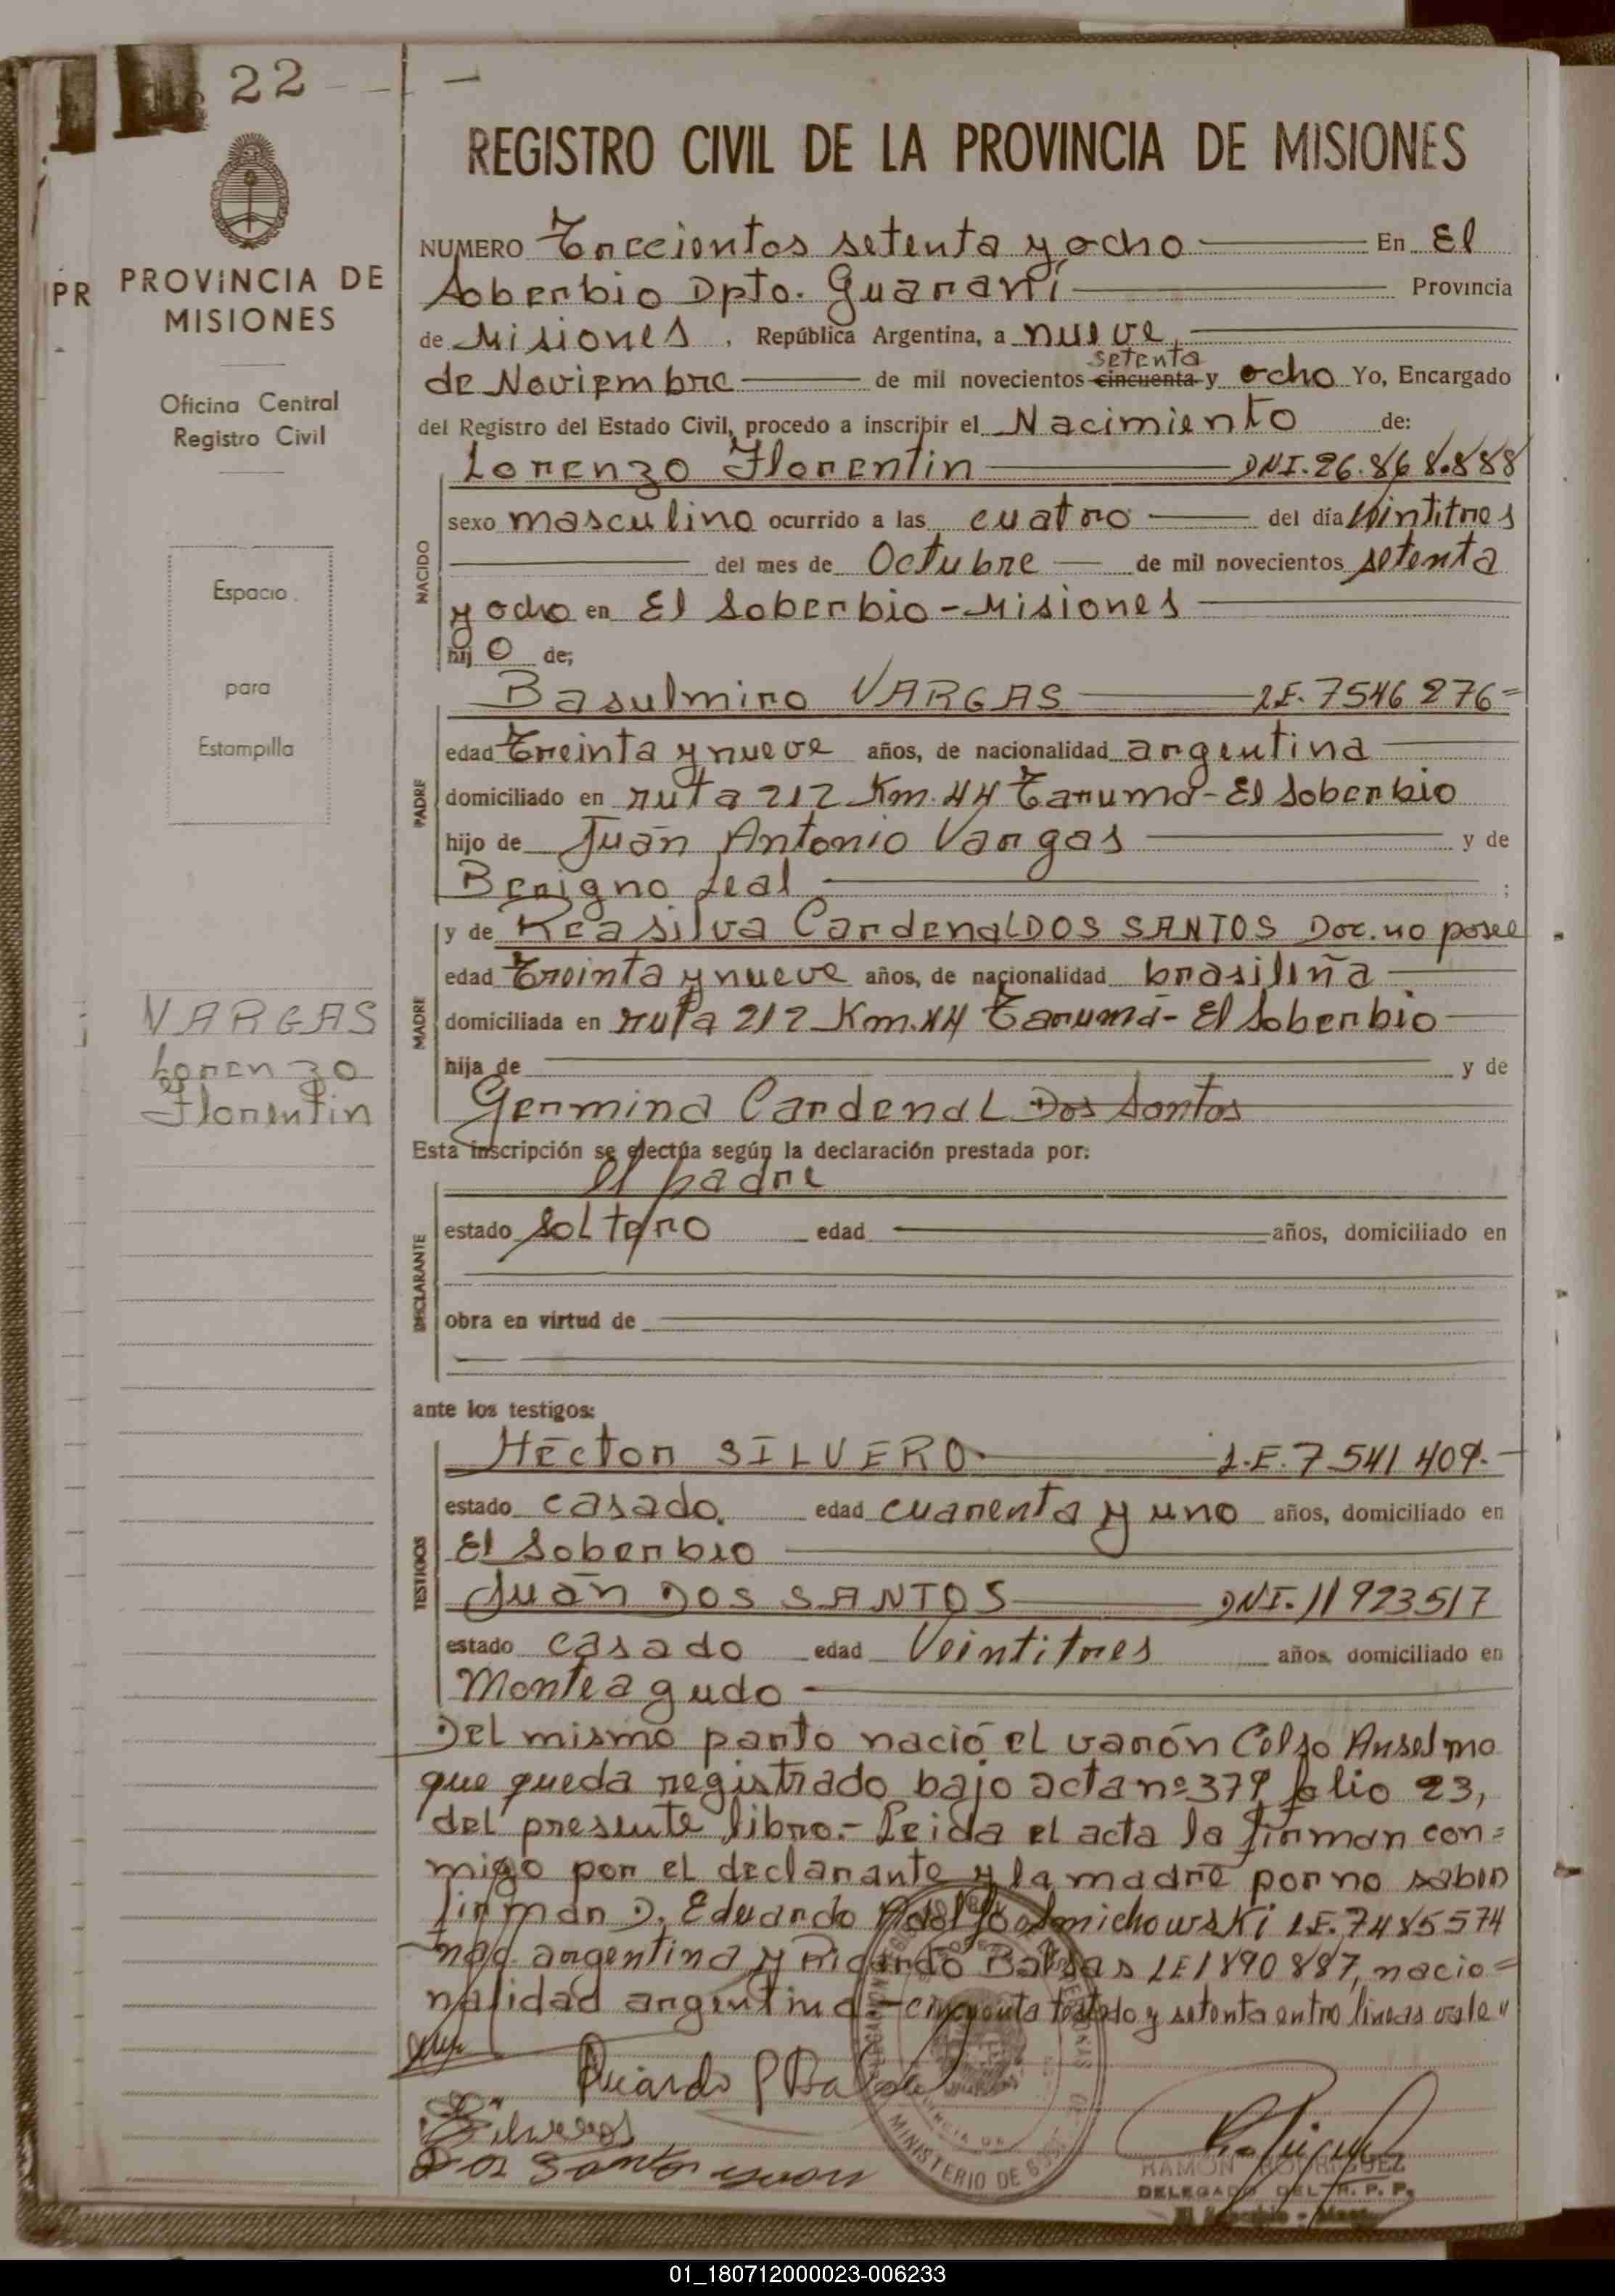 22
PR
PROVINCIA DE
MISIONES
Oficina Central
Registro Civil
Espacio
para
Estampilla
VARGAS
Lorenzo
Florentin
REGISTRO CIVIL DE LA PROVINCIA DE MISIONES
NUMERO Trecientos setenta y ocho En El
Soberbio Dpto. Guaraní Provincia
de Misiones, República Argentina, a nueve
setenta
de Noviembre de mil novecientos cincuenta y ocho Yo, Encargado
del Registro del Estado Civil, procedo a inscribir el Nacimiento de:
Lorenzo Florentin DNI. 26.868.888
sexo masculino ocurrido a las cuatro del día vintitres
del mes de Octubre de mil novecientos setenta
y ocho en El Soberbio - Misiones
hij o de;
Basulmiro VARGAS L.E. 7546276=
edad Treinta y nueve años, de nacionalidad argentina
domiciliado en ruta 212 Km. 44 Taruma - El Soberbio
hijo de Juan Antonio Vargas y de
Benigno Leal ;
y de Reasilva Cardenal DOS SANTOS Doc. no posee
edad Treinta y nueve años, de nacionalidad brasileña
domiciliada en ruta 212 Km. 44 Tarumá - El Soberbio
hija de y de
Germina Cardenal Dos Santos
Esta inscripción se efectúa según la declaración prestada por:
el padre
estado soltero edad años, domiciliado en
obra en virtud de
ante los testigos:
Héctor SILVERO L.E. 7.541.409.-
estado casado. edad cuarenta y uno años, domiciliado en
El Soberbio
Juan DOS SANTOS DNI. 11923517
estado casado edad Veintitres años, domiciliado en
Monteagudo
Del mismo parto nació el varón Celso Anselmo
que queda registrado bajo acta nº 379 folio 23,
del presente libro.- Leida el acta la firman con=
migo por el declarante y la madre por no saber
firmar D. Eduardo LE. 7485574
nac. argentina y Ricardo Balsas LE 1890887, nacio=
nalidad argentina - cincuenta testado y setenta entre lineas vale"
Ricardo
Silvero
Dos Santos Juan
MINISTERIO DE
RAMON RODRIGUEZ
DELEGADO DEL R. P. P.
NACIDO
PADRE
MADRE
DECLARANTE
TESTIGOS
01_180712000023-006233